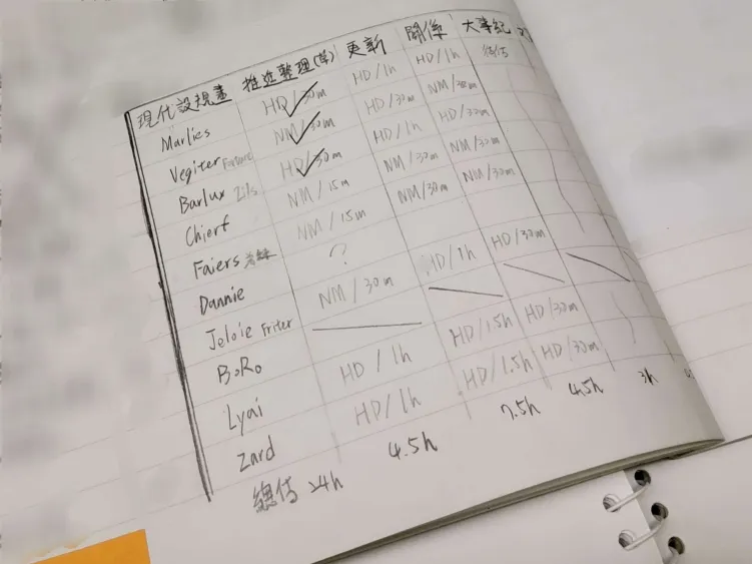 現代設規畫 推進整理(草) 更新 關係 大事紀
Marlies HD/30m HD/1h HD/1h
Vegiter NM/30m HD/30m NM/30m
Barlux Zils HD/30m HD/1h HD/30m
Chierf NM/15m NM/30m NM/30m
Faiers NM/15m NM/30m NM/30m
Dannie ?
Jeloie Friter NM/30m HD/1h HD/30m
BoRo
Lyai HD/1h HD/1.5h HD/30m
Zard HD/1h HD/1.5h HD/30m
總估 24h 4.5h 7.5h 4.5h 3h